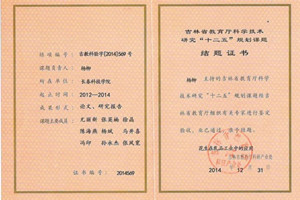 课题编号：吉教科验字[2014]569号
课题负责人：杨柳
所在单位：长春科技学院
起止时间：2012—2014
成果形式：论文、研究报告
杨斌 马井喜
冯印 孙永杰 张凤霞
证书编号：2014569
吉林省教育厅科学技术
研究“十二五”规划课题
结题证书
杨柳 主持的吉林省教育厅科学
技术研究“十二五”规划课题经吉
林省教育厅组织有关专家进行鉴定
验收，业已通过，准予结题。
2014 12 31